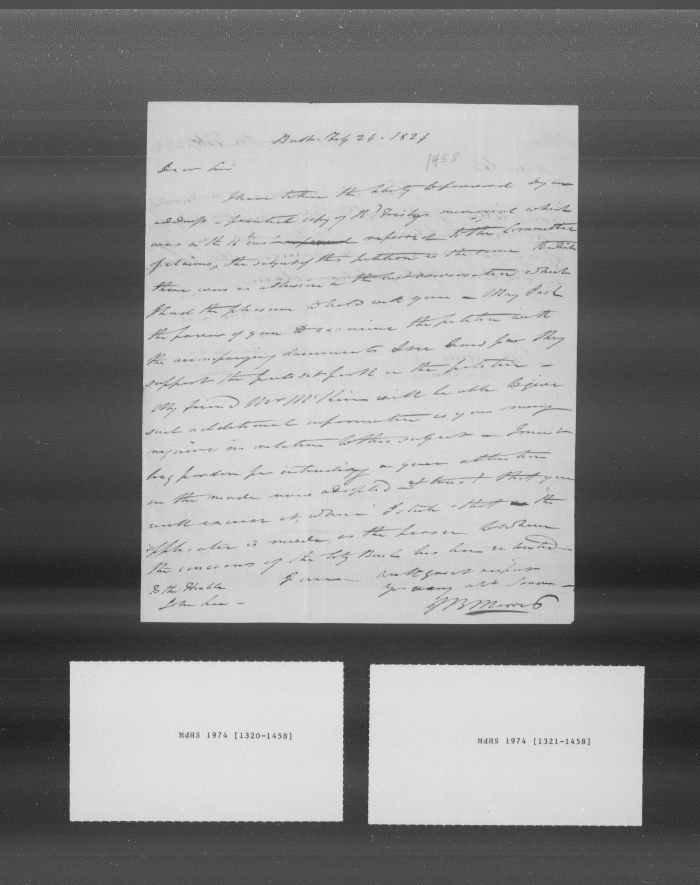 Balt. Feby 26. 1824
1458
Dear Sir
I have taken the liberty to forward to your
address a printed copy of Frisbys memorial which
was referred to the Committee
of claims, the subject of this petition is the same to which
there was an allusion in the last conversation which
I had the pleasure to hold with you — May I ask
the favour of you to examine the petition with
the accompanying documents & see how far they
support the facts set forth in the petition —
My friend Mr McKim will be able to give
such additional information as you may
require in relation to this subject — I must
beg pardon for intruding on your attention
in the mode now adopted & trust that you
will excuse it, when I state that the
application is made as the person to whom
the concerns of the City Bank has been entrusted
with great respect
To the Honble
Yr obt Servt
John Lee —
J B Morris
MdHS 1974 [1320-1458]
MdHS 1974 [1321-1458]